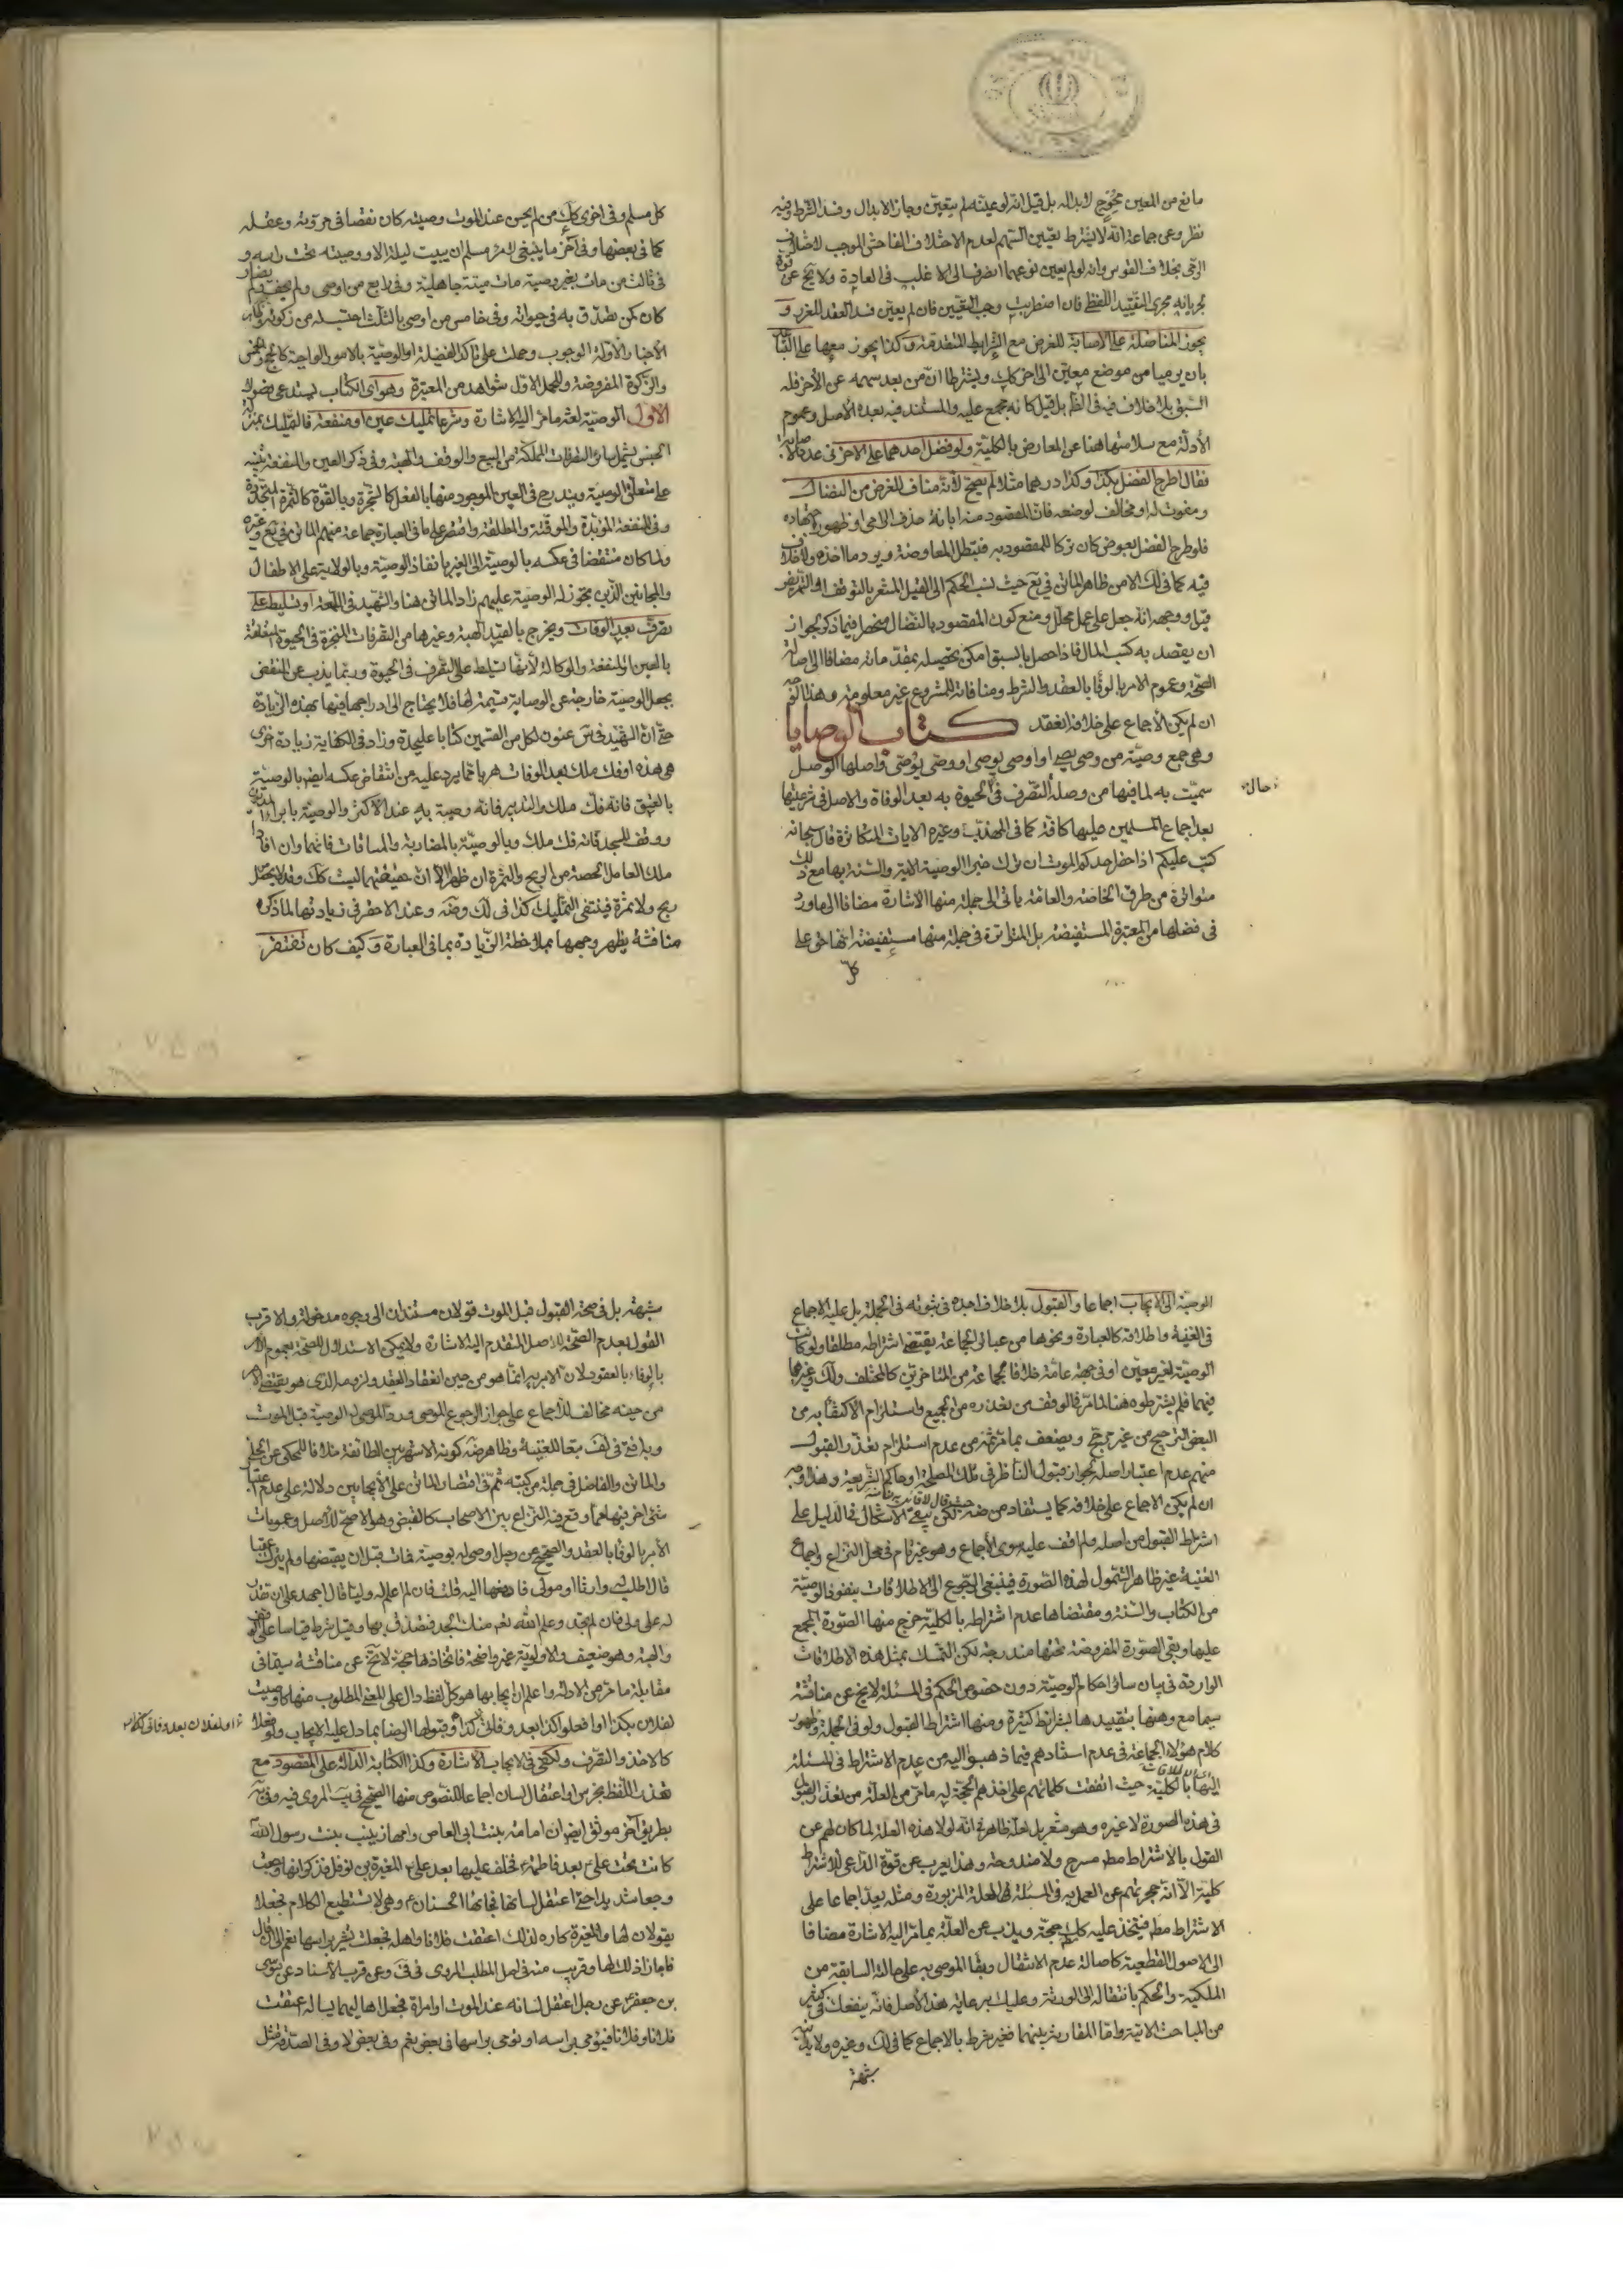 مانع من المعين محوج لابداله بل قيل انه لو عينه لم يتعين وجاز الابدال وفسد الشرط وفيه
نظر وعن جماعة انه لا يشترط تعيين السهم لعدم الاختلاف الفاحش الموجب لاختلاف
الرمى بخلاف القوس وانه لو لم يعين نوعهما انصرف الى الاغلب فى العادة ولا يخ عن قوة
لجريانه مجرى التقييد اللفظى فان اضطربت وجب التعيين فان لم يعين فسد العقد للغرر و
يجوز المناضلة على الاصابة للغرض مع الشرايط المتقدمة وكذا يجوز معها على التباعد
بان يرميا من موضع معين الى اخر كك ويشترطا ان من بعد سهمه عن الاخر فله
السبق بلا خلاف فيه فى الظ بل قيل كانه مجمع عليه والمستند فيه بعده الاصل وعموم
الأدلة مع سلامتها هنا عن المعارض بالكلية ولو فضل احدهما على الاخر فى عدد الاصابة
فقال اطرح الفضل بكذا وكذا درهما مثلا لم يصح لأنه مناف للغرض من النضال
ومفوت له او مخالف لوضعه فان المقصود منه ابانة حذق الرامى وظهور اجتهاده
فلو طرح الفضل بعوض كان تركا للمقصود به فتبطل المعاوضة ويرد ما اخذه ولا خلاف
فيه كما فى لك الا من ظاهر الماتن فى يع حيث نسب الحكم الى القيل المشعر بالتوقف او التمريض
قيل ووجهه انه جعل على عمل محلل ومنع كون المقصود بالنضال منحصرا فيما ذكر لجواز
ان يقصد به كسب المال فاذا حصل بالسبق امكن تحصيله بمقدماته مضافا الى اصالة
الصحة وعموم الامر بالوفا بالعقد والشرط ومنافاته للمشروع غير معلومة وهذا اقوى
ان لم يكن الأجماع على خلافه انعقد كتاب الوصايا
وهى جمع وصية من وصى يصى او اوصى يوصى او وصى يوصى واصلها الوصل
سميت به لما فيها من وصلة التصرف فى الحيوة به بعد الوفاة والاصل فى شرعيتها
حال
بعد اجماع المسلمين عليها كافة كما فى المهذب وغيره الايات المتكاثرة قال سبحانه
كتب عليكم اذا حضر احدكم الموت ان ترك خيرا الوصية الاية والسنة بها مع ذلك
متواترة من طرق الخاصة والعامة يأتى الى جملة منها الاشارة مضافا الى ما ورد
فى فضلها من المعتبرة المستفيضة بل المتواترة فى جملة منها مستفيضة انها حق على
كل
كل مسلم وفى اخرى كك من لم يحسن عند الموت وصيته كان نقصا فى مروته وعقله
كما فى بعضها وفى آخر ما ينبغى لامرء مسلم ان يبيت ليلة الا ووصيته تحت راسه و
فى ثالث من مات بغير وصية مات ميتة جاهلية وفى رابع من اوصى ولم يحف ولم يضار
كان كمن تصدق به فى حيوته وفى خامس من اوصى بالثلث احتسب له من زكوته
الأخبار الأولة الوجوب وحملت على تاكد الفضيلة او الوصية بالامور الواجبة كالحج والخمس
والزكوة المفروضة وللحمل الاول شواهد من المعتبرة وهو اى الكتاب يستدعى فصولا
الاول الوصية لغة ما مر اليه الاشارة وشرعا تمليك عين او منفعة فالتمليك بمنزلة
الجنس يشمل سائر التصرفات المملكة من البيع والوقف والهبة وفى ذكر العين والمنفعة تنبيه
على متعلق الوصية ويندرج فى العين الموجود منها بالفعل كالشجرة وبالقوة كالثمرة المتجددة
وفى المنفعة المؤبدة والموقتة والمطلقة واقتصر على ما فى العبارة جماعة منهم الماتن فى يع وغيره
ولما كان منتقضا فى عكسه بالوصية الى الغير بانفاذ الوصية وبالولاية على الاطفال
والمجانين الذين تجوز له الوصية عليهم زاد الماتن هنا والشهيد فى اللمعة او تسليط على
تصرف بعد الوفات ويخرج بالقيد الهبة وغيرها من التصرفات المنجزة فى الحيوة المتعلقة
بالعين او المنفعة والوكالة لأنها تسلط على التصرف فى الحيوة وربما يذب عن النقض
بجعل الوصية خارجة عن الوصاية قسيمة لها فلا يحتاج الى ادراجها فيها بهذه الزيادة
حتى ان الشهيد فى س عنون لكل من القسمين كتابا عليحدة وزاد فى الكفاية زيادة اخرى
هى هذه او فك ملك بعد الوفات هربا مما يرد عليه من انتقاض عكسه ايض بالوصية
بالعتق فانه فك ملك والتدبير فانه وصية به عند الاكثر والوصية بابراء المديون
ووقف المسجد فانه فك ملك وبالوصية بالمضاربة والمساقات فانهما وان افادا
ملك العامل الحصة من الربح والثمرة ان ظهرا الا ان حقيقتهما ليست كك وقد لا يحصل
ربح ولا ثمرة فينتفى التمليك كذا فى لك وضه وعند الاحقر فى زيادتها لما ذكره
مناقشة يظهر وجهها بملاحظة الزيادة بما فى العبارة وكيف كان تفتقر
الوصية الى الايجاب اجماعا والقبول بلا خلاف اجده فى ثبوته فى الجملة بل عليه الاجماع
فى الغنية واطلاقه كالعبارة ونحوها من عبائر الجماعة يقتضى اشتراطه مطلقا ولو كانت
الوصية لغير معين او فى جهة عامة خلافا لجماعة من المتاخرين كالمختلف ولك وغيرهما
فيهما فلم يشترطوه هنا لما مر فى الوقف من تعذره من الجميع واستلزام الأكتفاء به من
البعض الترجيح من غير مرجح ويضعف بما مر ثمة من عدم استلزام تعذر القبول
منهم عدم اعتبار اصله لجواز قبول الناظر فى تلك المصلحة او حاكم الشريعة وهذا اوجه
ان لم يكن الاجماع على خلافه كما يستفاد من ضه لكن يبقى الاشكال فى الدليل على
اشتراط القبول من اصله ولم اقف عليه سوى الأجماع وهو غير تام فى محل النزاع واجماع
الغنية غير ظاهر الشمول لهذه الصورة فينبغى الرجوع الى الاطلاقات بنفوذ الوصية
من الكتاب والسنة ومقتضاها عدم اشتراطه بالكلية خرج منها الصورة المجمع
عليها وبقى الصورة المفروضة تحتها مندرجة لكن التمسك بمثل هذه الاطلاقات
الواردة فى بيان سائر احكام الوصية دون خصوص الحكم فى المسئلة لا يخ عن مناقشة
سيما مع وهنها بتقييدها بشرائط كثيرة ومنها اشتراط القبول ولو فى الجملة وظهور
كلام هؤلاء الجماعة فى عدم استنادهم فيما ذهبوا اليه من عدم الاشتراط فى المسئلة
اليها بالكلية حيث اتفقت كلماتهم على اخذهم الحجة له ما مر من العلة من تعذر القبول
فى هذه الصورة لا غيره وهو مشعر بل لعله ظاهر فى انه لولا هذه العلة لما كان لهم عن
القول بالاشتراط مط مسرح ولا مندوحة وهذا يعرب عن قوة الداعى للاشتراط
كلية الا انه حجرتهم عن العمل به فى المسئلة العلة المزبورة ومثله يعد اجماعا على
الاشتراط مط فيتخذ عليه كلية حجة ويذب عن العلة بما مر اليه الاشارة مضافا
الى الاصول القطعية كاصالة عدم الانتقال وبقاء الموصى به على حالته السابقة من
الملكية والحكم بانتقاله الى الورثة وعليك برعاية هذا الاصل فانه ينفعك فى كثير
من المباحث الاتية واما المقارنة بينهما فغير شرط بالاجماع كما فى لك وغيره ولا
شبهة
شبهة بل فى صحة القبول قبل الموت قولان مستندان الى وجوه مدخولة والاقرب
القول بعدم الصحة للاصل المتقدم اليه الاشارة ولا يمكن الاستدلال للصحة بعموم الامر
بالوفاء بالعقود لان الامر به انما هو من حين انعقاد العقد ولزومه الذى هو يقتضى الامر
من حينه مخالف للأجماع على جواز الرجوع للموصى ورد الموصى له الوصية قبل الموت
وبه افتى فى لف تبعا للغنية وظاهر ضه كونه الاشهر بين الطائفة خلافا للمحكى عن الحلى
والماتن والفاضل فى جملة من كتبه ثم فى اقتصار الماتن على الايجابين دلالة على عدم اعتبار
شئ اخر فيها مما وقع فيه النزاع بين الاصحاب كالقبض وهو الاصح للأصل وعمومات
الأمر بالوفا بالعقد والصحيح عن رجل اوصى له بوصية فمات قبل ان يقبضها ولم يترك عقبا
قال اطلب له وارثا او مولى فادفعها اليه قلت فان لم اعلم له وليا قال اجهد على ان تقدر
له على ولى فان لم تجد وعلم الله تعم منك الجد فتصدق بها وقيل شرط قياسا على الوقف
والهبة وهو ضعيف والاولوية غير واضحة فاتخاذها حجة لا يخ عن مناقشة سيما فى
مقابلة ما مر من الادلة واعلم ان ايجابها هو كل لفظ دال على المعنى المطلوب منها كاوصيت
لفلان بكذا او افعلوا كذا بعد وفاتى كذا وقبولها الرضا بما دل عليه الايجاب ولو فعلا
او لفلان بعد وفاتى كذا
كالاخذ والتصرف وتكفى فى الايجاب الاشارة وكذا الكتابة الدالة على المقصود مع
تعذر اللفظ بخرس او اعتقال لسان اجماعا للنصوص منها الصحيح فى يب المروى فيه وفى يه
بطريق آخر موثق ايض ان امامة بنت ابى العاص وامها زينب بنت رسول الله
كانت تحت على بعد فاطمة فخلف عليها بعد على المغيرة بن نوفل فذكر انها وجعت
وجعا شديدا حتى اعتقل لسانها فجاءها الحسنان وهى لا تستطيع الكلام فجعلا
يقولان لها والمغيرة كاره لذلك اعتقت فلانا واهله فجعلت تشير براسها نعم الى ان قال
فاجازا ذلك لها وقريب منه فى اصل المطلب المروى فى فق وعن قرب الأسناد عن
بن جعفر عن رجل اعتقل لسانه عند الموت او امراة فجعل اهاليهما يساله اعتقت
فلانا وفلانا فيؤمى براسه او تومى براسها فى بعض نعم وفى بعض لا وفى الصدقة مثل